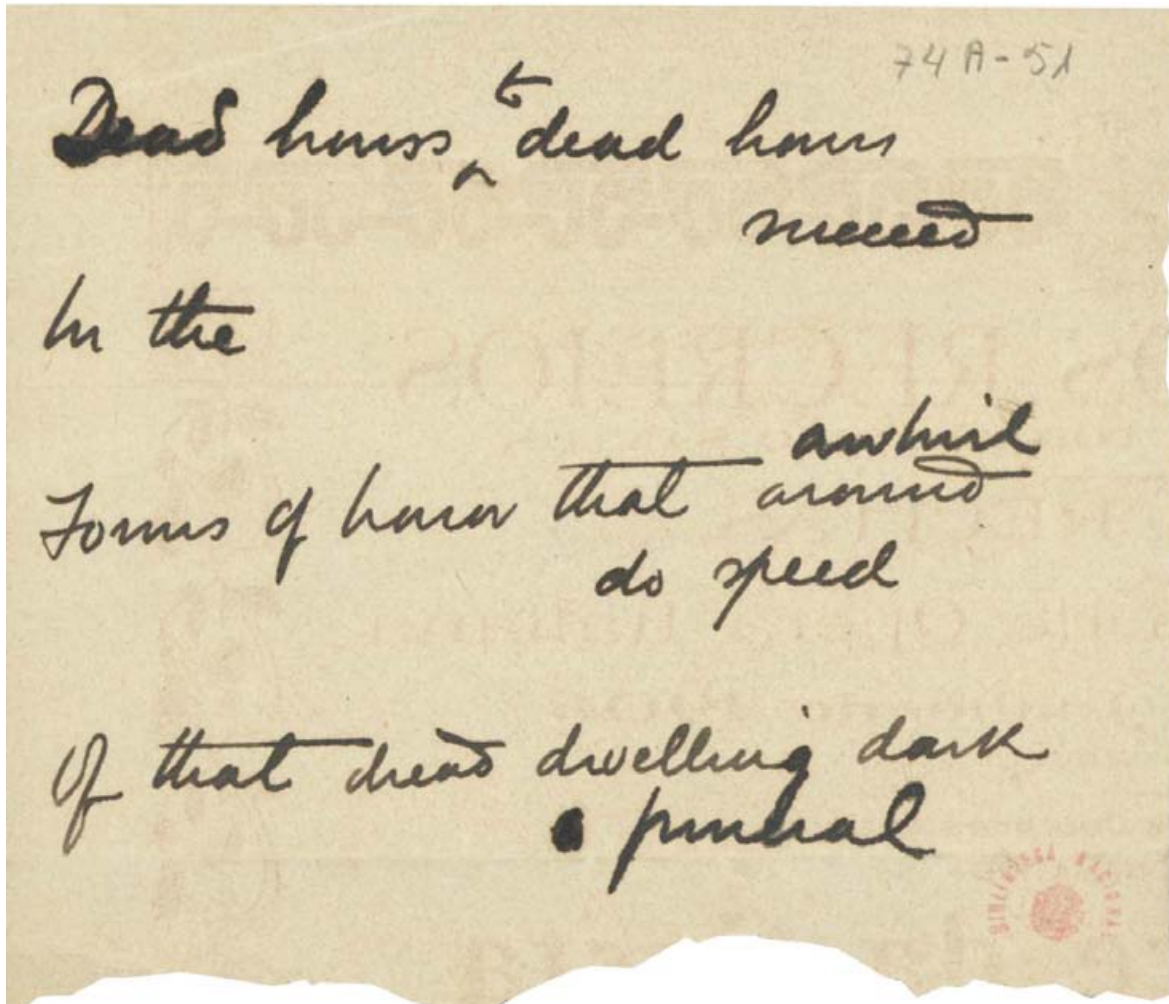 74A-51
Dead hours to dead hours
succeed
In the
awhirl
Forms of horror that around
do speed
Of that dread dwelling dark
funeral
BIBLIOTECA NACIONAL